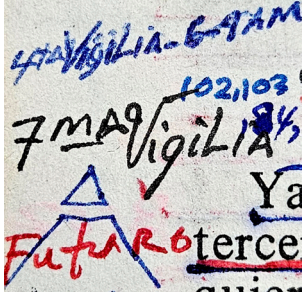 4TA Vigilia - 6-9AM
102,103
7MA Vigilia 184,
Ya
Futuro terce